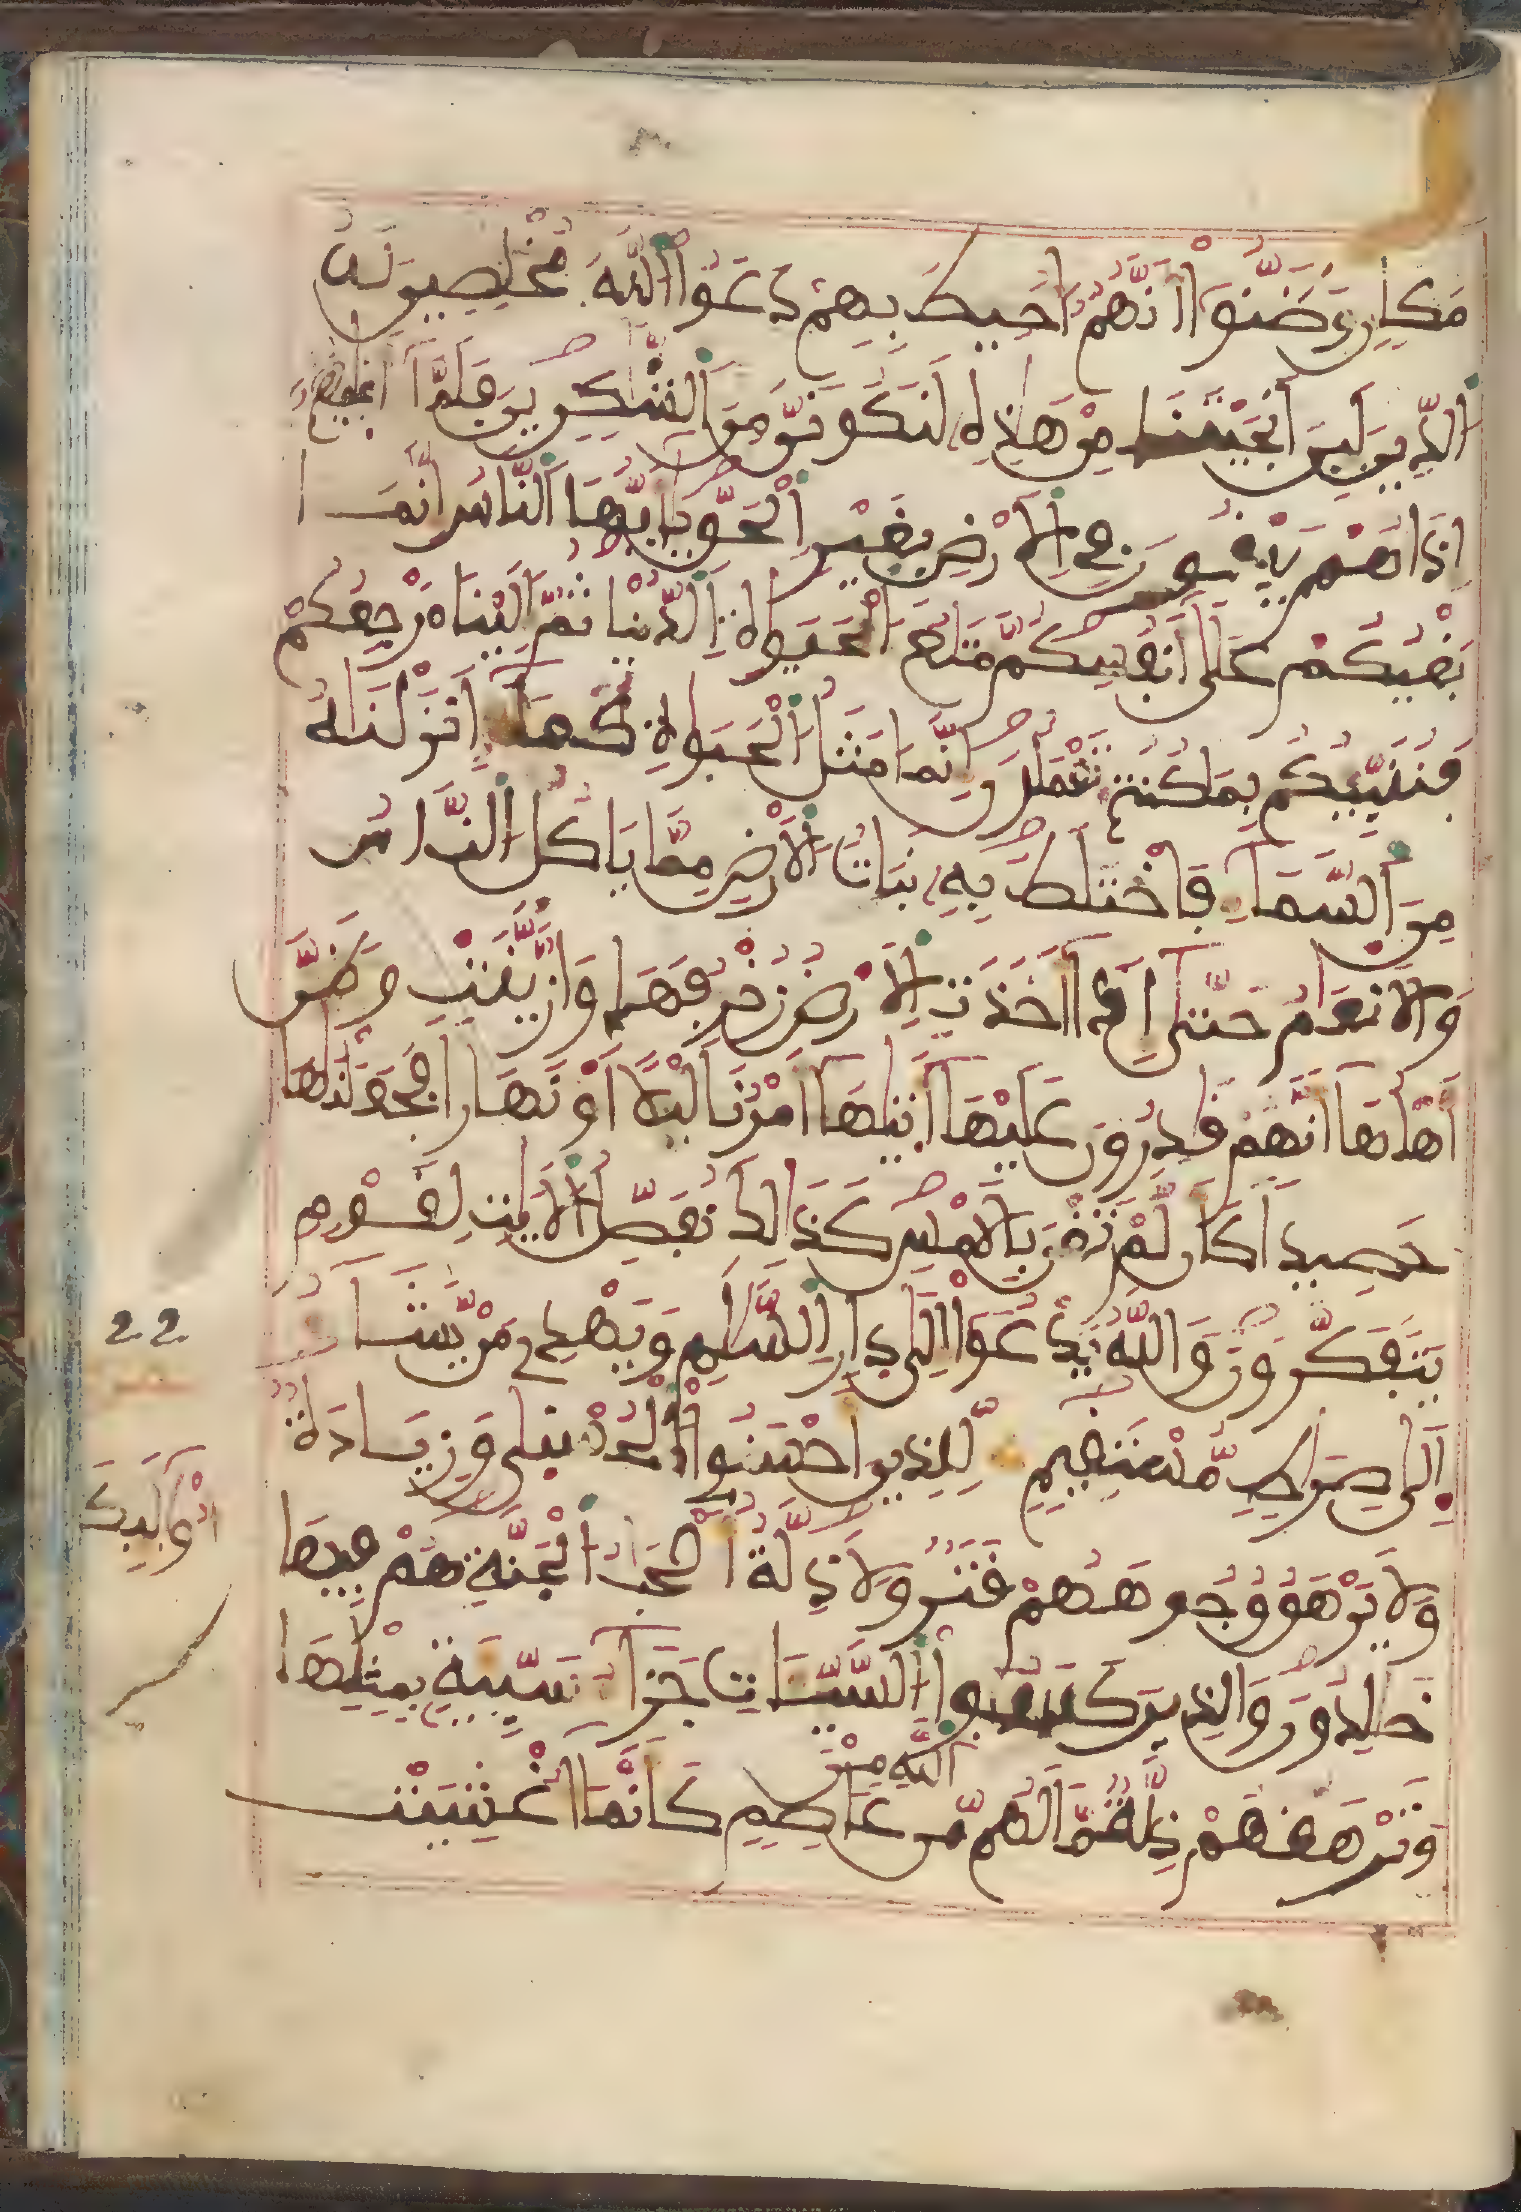 مَكَانٍ وَظَنُّوا أَنَّهُمُ أُحِيطَ بِهِمْ دَعَوُا اللَّهَ مُخْلِصِينَ لَهُ
الدِّينَ لَئِنْ أَنجَيْتَنَا مِنْ هَٰذِهِ لَنَكُونَنَّ مِنَ الشَّٰكِرِينَ فَلَمَّا أَنجَيٰهُمُ
إِذَا هُمْ يَبْغُونَ فِي الْأَرْضِ بِغَيْرِ الْحَقِّ يَا أَيُّهَا النَّاسُ إِنَّمَا
بَغْيُكُمْ عَلَى أَنفُسِكُم مَّتَٰعُ الْحَيَوٰةِ الدُّنْيَا ثُمَّ إِلَيْنَا مَرْجِعُكُمْ
فَنُنَبِّئُكُم بِمَا كُنتُمْ تَعْمَلُونَ إِنَّمَا مَثَلُ الْحَيَوٰةِ كَمَاءٍ أَنزَلْنَٰهُ
مِنَ السَّمَاءِ فَاخْتَلَطَ بِهِ نَبَاتُ الْأَرْضِ مِمَّا يَأْكُلُ النَّاسُ
وَالْأَنْعَٰمُ حَتَّىٰ إِذَا أَخَذَتِ الْأَرْضُ زُخْرُفَهَا وَازَّيَّنَتْ وَظَنَّ
أَهْلُهَا أَنَّهُمْ قَٰدِرُونَ عَلَيْهَا أَتَىٰهَا أَمْرُنَا لَيْلًا أَوْ نَهَارًا فَجَعَلْنَٰهَا
حَصِيدًا كَأَن لَّمْ تَغْنَ بِالْأَمْسِ كَذَٰلِكَ نُفَصِّلُ الْآيَٰتِ لِقَوْمٍ
يَتَفَكَّرُونَ وَاللَّهُ يَدْعُوا إِلَىٰ دَارِ السَّلَٰمِ وَيَهْدِي مَن يَّشَاءُ
إِلَىٰ صِرَٰطٍ مُّسْتَقِيمٍ لِّلَّذِينَ أَحْسَنُوا الْحُسْنَىٰ وَزِيَادَةٌ
وَلَا يَرْهَقُ وُجُوهَهُمْ قَتَرٌ وَلَا ذِلَّةٌ أَصْحَٰبُ الْجَنَّةِ هُمْ فِيهَا
خَٰلِدُونَ وَالَّذِينَ كَسَبُوا السَّيِّـَٔاتِ جَزَاءُ سَيِّئَةٍ بِمِثْلِهَا
وَتَرْهَقُهُمْ ذِلَّةٌ مَّا لَهُم مِّنَ اللَّهِ مِنْ عَاصِمٍ كَأَنَّمَا أُغْشِيَتْ
22